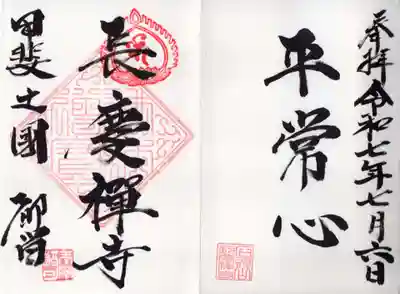 奉拝 令和七年七月六日
平常心
長慶禅寺
甲斐之國 都留